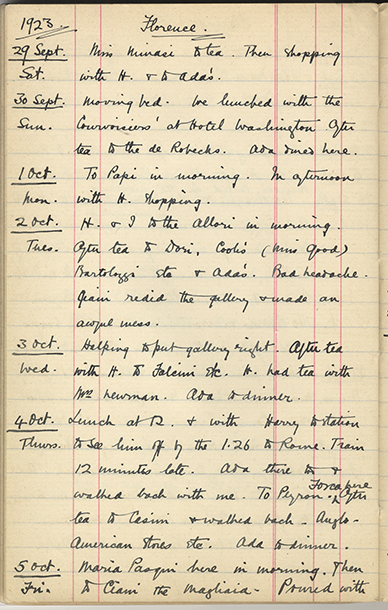 1923. Florence.
29 Sept. Miss Minasi to tea. Then shopping
Sat. with H. & to Ada's.
30 Sept. Moving bed. We lunched with the
Sun. Courvoisiers' at Hotel Washington After
tea to the de Robecks. Ada dined here.
1 Oct. To Papi in morning. In afternoon
Mon. with H. Shopping.
2 Oct. H. & I to the Allori in morning.
Tues. After tea to Dori, Cook's (Miss Good)
Bartolozzi etc & Ada's. Bad headache.
the gallery & made an
awful mess.
3 Oct. Helping to put gallery right. After tea
Wed. with H. to Falcini etc. H. had tea with
Mrs Newman. Ada to dinner.
4 Oct. Lunch at 12. & with Harry to station
Thurs. to see him off by the 1.26 to Rome. Train
12 minutes late. Ada there to &
walked back with me. To Peyron - After
tea to & walked back - Anglo-
American Stores etc. Ada to dinner.
5 Oct. Maria Pasqui here in morning. Then
Fri. to the - Poured with